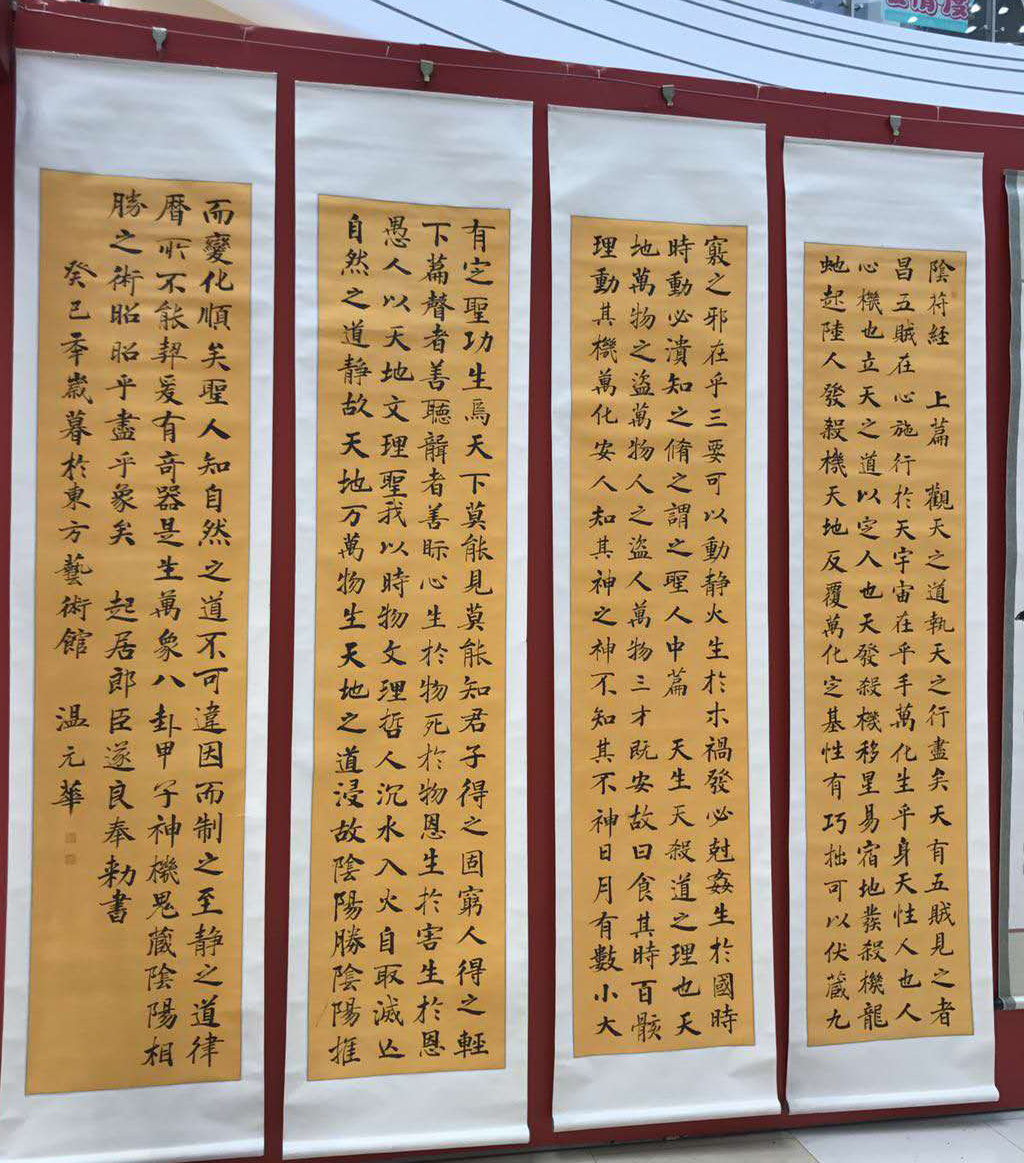 陰符經　上篇　觀天之道執天之行盡矣天有五賊見之者
昌五賊在心施行於天宇宙在乎手萬化生乎身天性人也人
心機也立天之道以定人也天發殺機移星易宿地發殺機龍
虵起陸人發殺機天地反覆萬化定基性有巧拙可以伏藏九
竅之邪在乎三要可以動静火生於木禍發必尅姦生於國時
時動必潰知之脩之謂之聖人中篇　天生天殺道之理也天
地萬物之盜萬物人之盜人萬物三才既安故曰食其時百骸
理動其機萬化安人知其神之神不知其不神日月有數小大
有定聖功生焉天下莫能見莫能知君子得之固窮人得之輕
下篇瞽者善聽聾者善眎心生於物死於物恩生於害生於恩
愚人以天地文理聖我以時物文理哲人沉水入火自取滅亡
自然之道静故天地万萬物生天地之道浸故陰陽勝陰陽推
而變化順矣聖人知自然之道不可違因而制之至静之道律
曆所不能契爰有奇器是生萬象八卦甲子神機鬼藏陰陽相
勝之術昭昭乎盡乎象矣　起居郎臣遂良奉勑書
癸巳年歲暮於東方藝術館　温元華